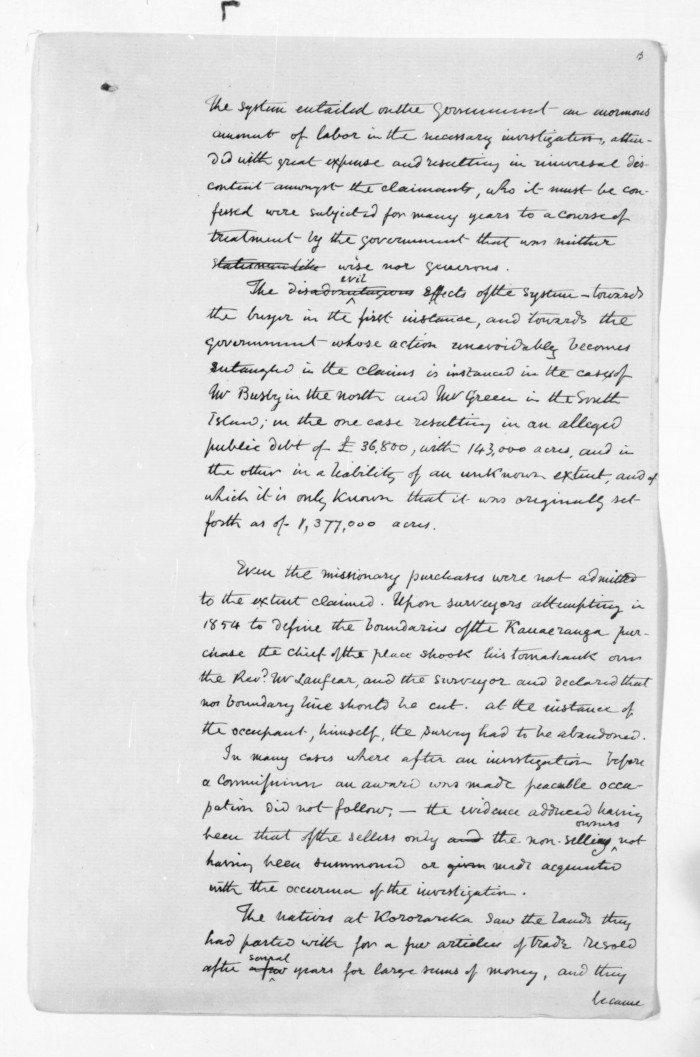 3
the system entailed on the Government an enormous
amount of labor in the necessary investigations, atten-
ded with great expense and resulting in universal dis-
content amongst the claimants, who it must be con-
fessed were subjected for many years to a course of
treatment by the government that was neither
statesmanlike wise nor generous.
evil
The disadvantageous effects of the system – towards
the buyer in the first instance, and towards the
government whose action unavoidably becomes
entangled in the claims is instanced in the cases of
Mr Busby in the north and Mr Green in the South
Island; in the one case resulting in an alleged
public debt of £36,800, with 143,000 acres, and in
the other in a liability of an unknown extent, and of
which it is only known that it was originally set
forth as of 1,377,000 acres.
Even the missionary purchases were not admitted
to the extent claimed. Upon surveyors attempting in
1854 to define the boundaries of the Kauaeranga pur-
chase the chief of the place shook his tomahawk over
the Revd. Mr Lanfear, and the surveyor and declared that
no boundary line should be cut. At the instance of
the occupant, himself, the survey had to be abandoned.
In many cases where after an investigation before
a Commissioner an award was made peaceable occu-
pation did not follow; – the evidence adduced having
owners
been that of the sellers only and the non-selling not
having been summoned or given made acquainted
with the occurrence of the investigation.
The natives at Kororareka saw the lands they
had parted with for a few articles of trade resold
several
after a few years for large sums of money, and they
became